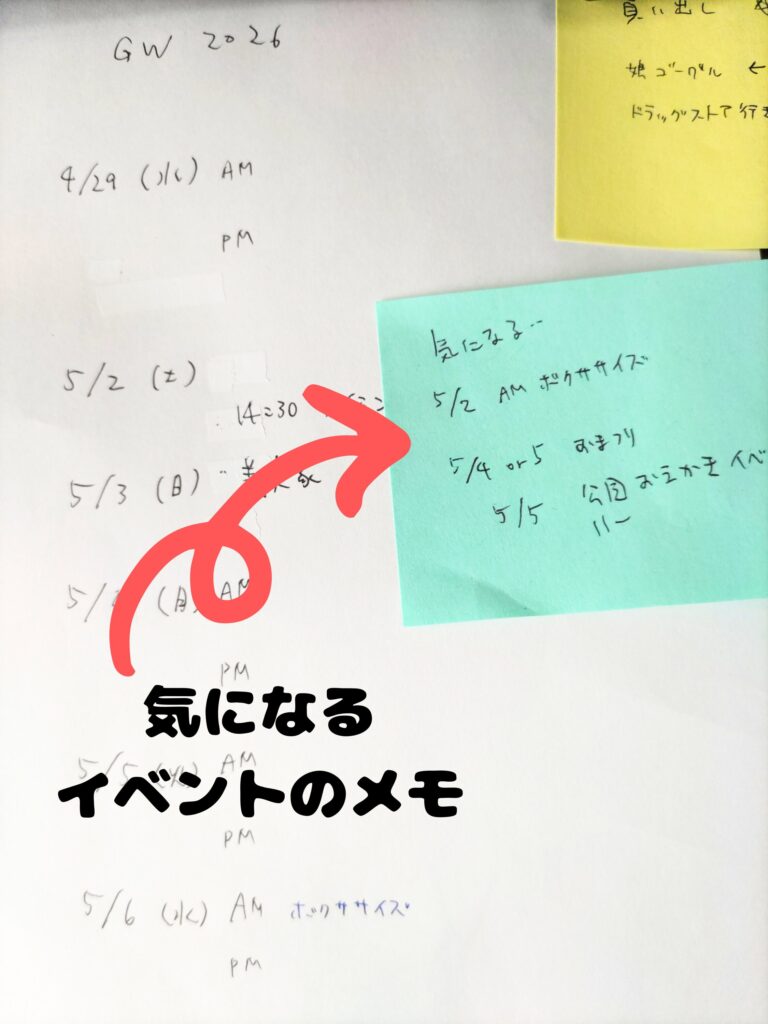 GW 2026
4/29 (水) AM
PM
5/2 (土)
14:30
5/3 (日)
5/ (月) AM
PM
5/5 (火) AM
PM
5/6 (水) AM ボクササイズ
PM
買い出し
娘ゴーグル ←
ドラッグストア行き
気になる‥
5/2 AM ボクササイズ
5/4 or 5 おまつり
5/5 公園 おえかき イベ
気になる
イベントのメモ